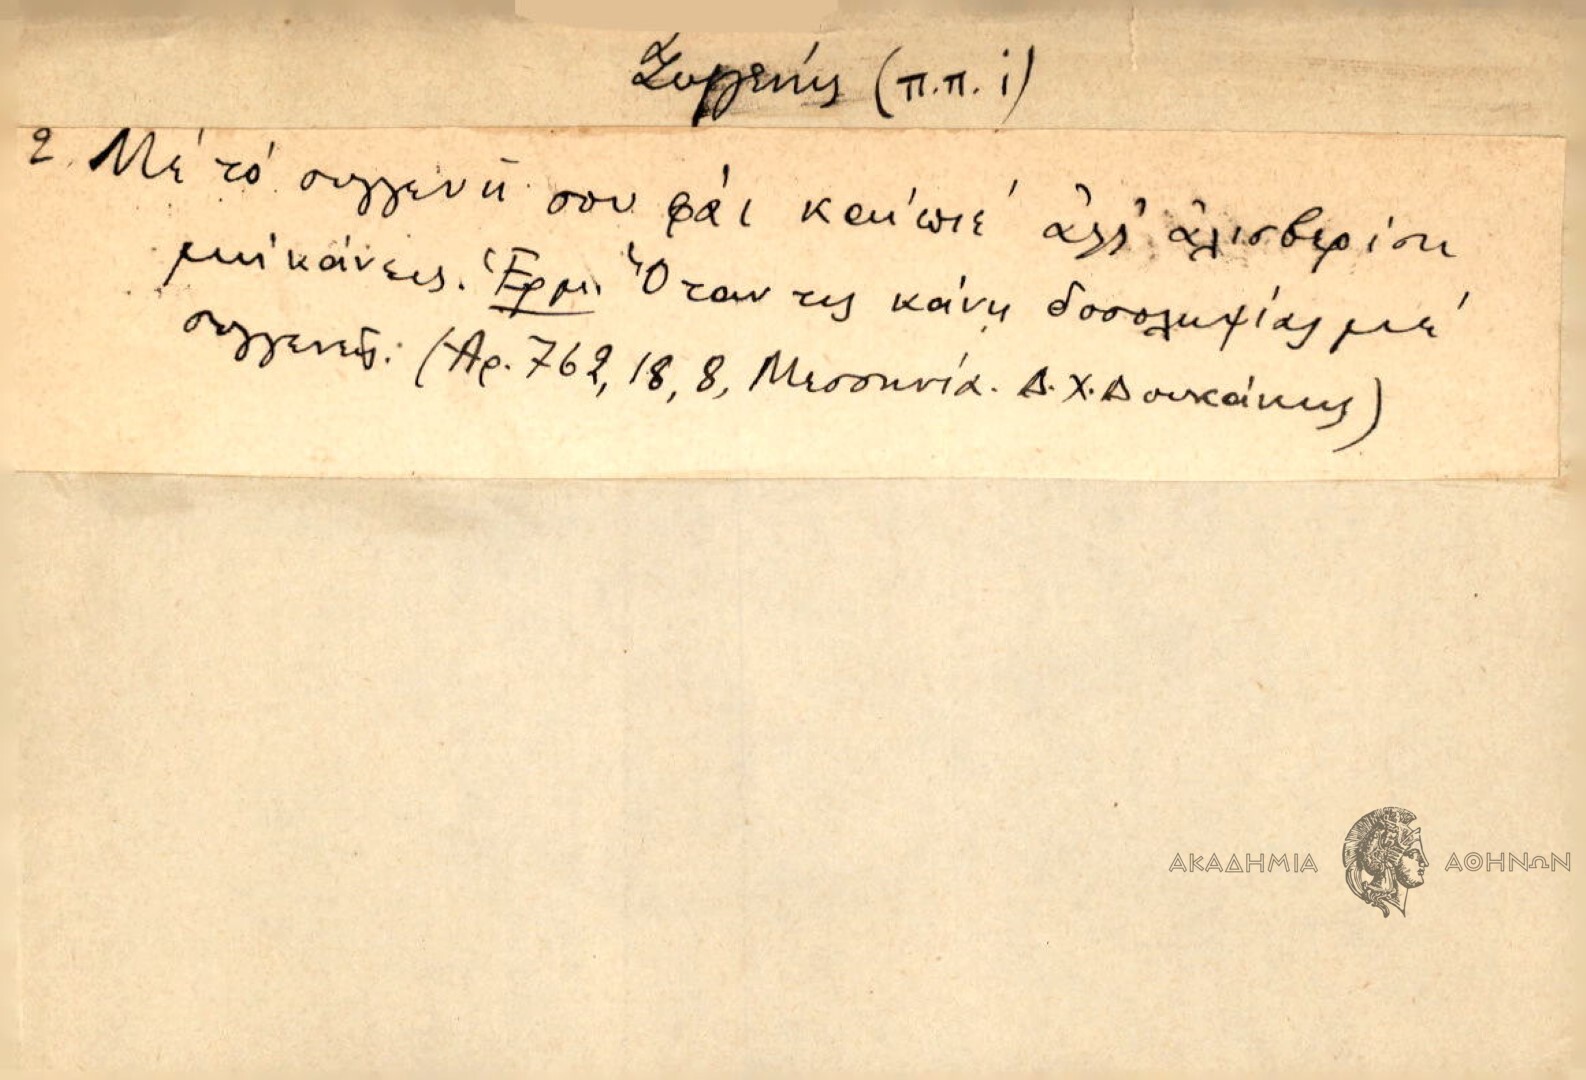 Συγγενής (π.π. i)
2. Μέ τό συγγενῆ σου φάϊ καί πιέ ἀλλ' ἀλισβερίσι
μή κάνεις. Ἑρμ. Ὅταν τις κάνῃ δοσοληψίας μέ
συγγενεῖς. (Ἀρ. 762, 18, 8, Μεσσηνία. Δ. Χ. Δουκάκης)
ΑΚΑΔΗΜΙΑ ΑΘΗΝΩΝ